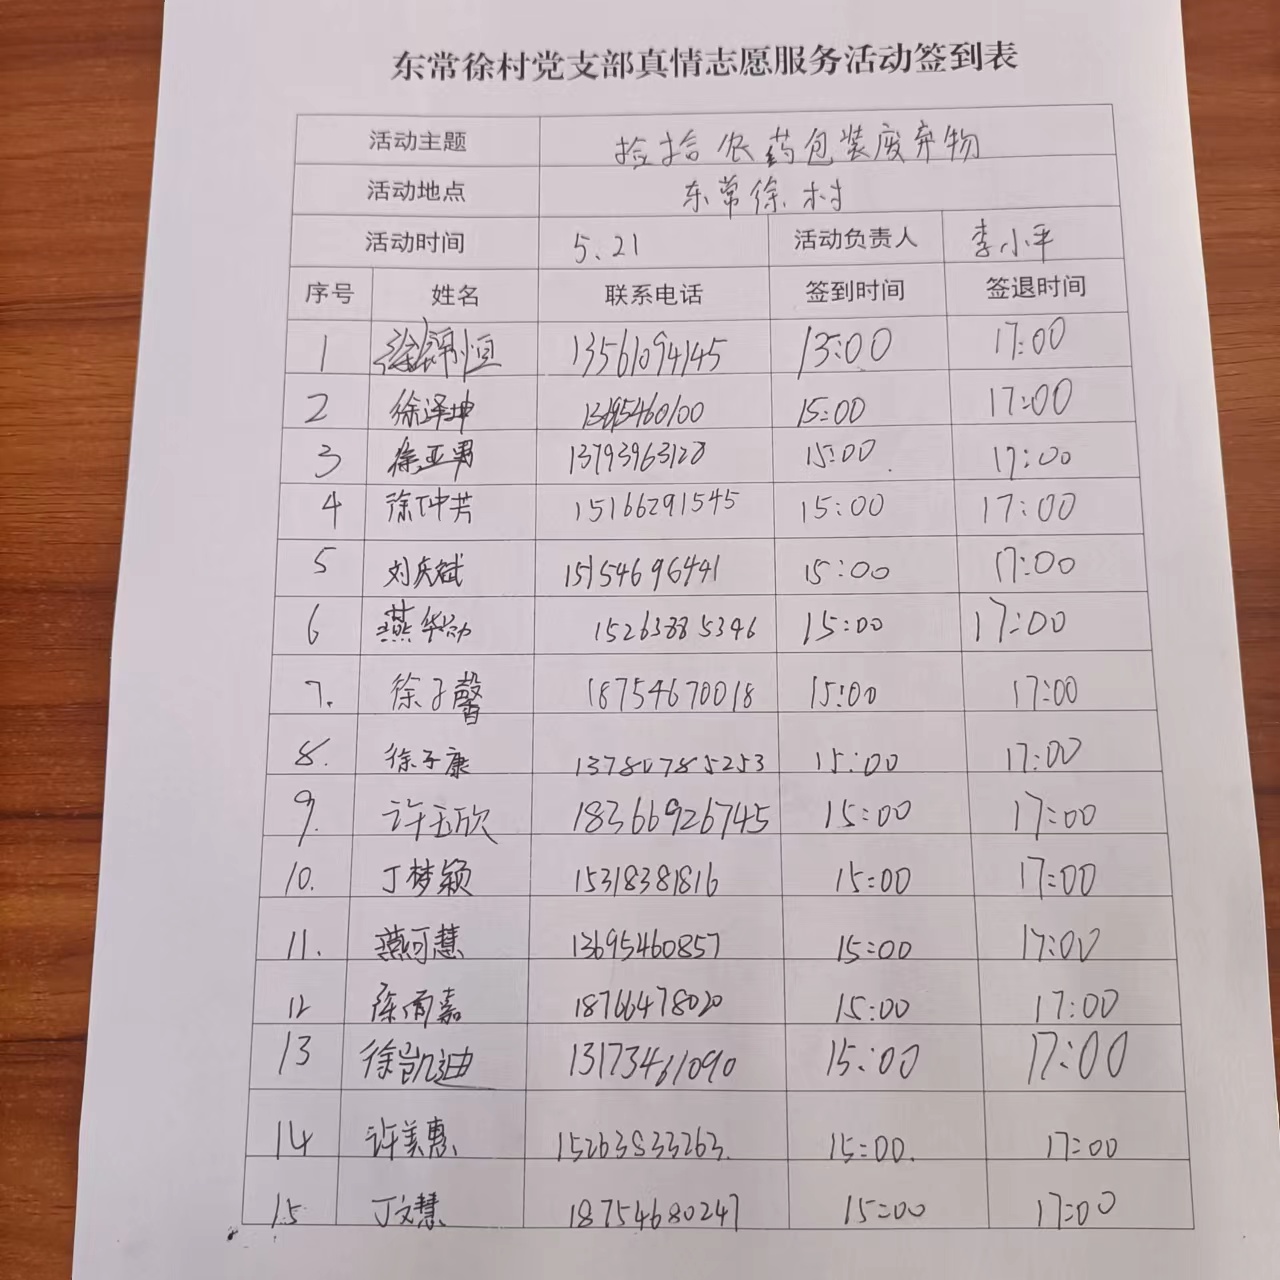 东常徐村党支部真情志愿服务活动签到表
活动主题 捡拾农药包装废弃物
活动地点 东常徐村
活动时间 5.21 活动负责人 李小平
序号 姓名 联系电话 签到时间 签退时间
1 13561094145 15:00 17:00
2 徐泽坤 15:00 17:00
3 徐亚男 13793963128 15:00 17:00
4 徐仲芳 15166291545 15:00 17:00
5 刘庆斌 15154696441 15:00 17:00
6 燕华 15263885346 15:00 17:00
7. 徐子馨 18754670018 15:00 17:00
8. 徐子康 15:00 17:00
9. 许玉欣 18366926745 15:00 17:00
10. 丁梦颖 15318381816 15:00 17:00
11. 燕可慧 13695460857 15:00 17:00
12 徐雨嘉 18766478020 15:00 17:00
13 徐凯迪 13173461090 15:00 17:00
14 许美惠 15263833263. 15:00. 17:00
15 丁文慧 18754680247 15:00 17:00